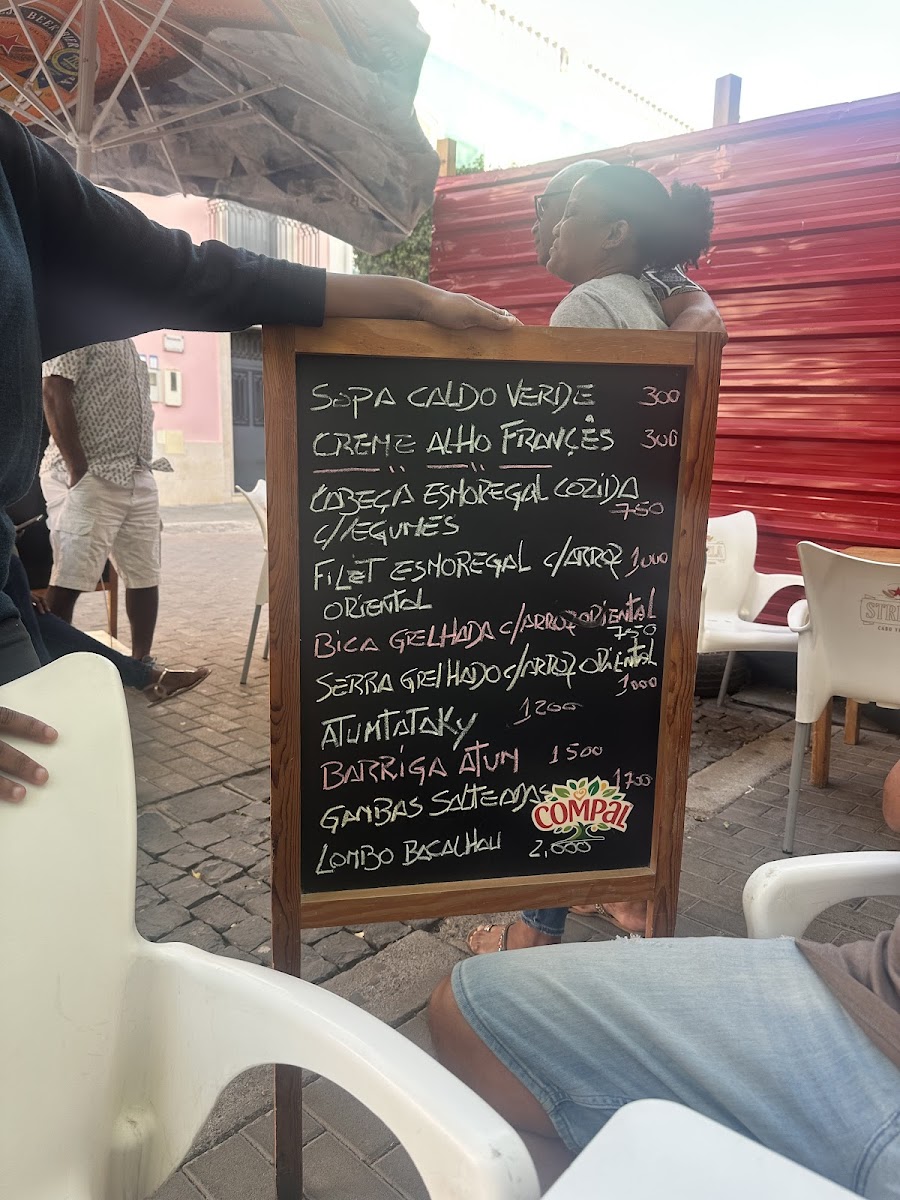 SOPA CALDO VERDE 300
CREME ALHO FRANÇÊS 300
CABEÇA ESMOREGAL COZIDA
750
C/LEGUMES
FILET ESMOREGAL C/ARROZ 1000
ORIENTAL
BICA GRELHADA C/ARROZ ORIENTAL
750
SERRA GRELHADO C/ARROZ ORIENTAL
1000
ATUMTATAKY 1200
BARRIGA ATUM 1500
GAMBAS SALTEADAS 1700
COMPAL
LOMBO BACALHAU 2,000
BEER